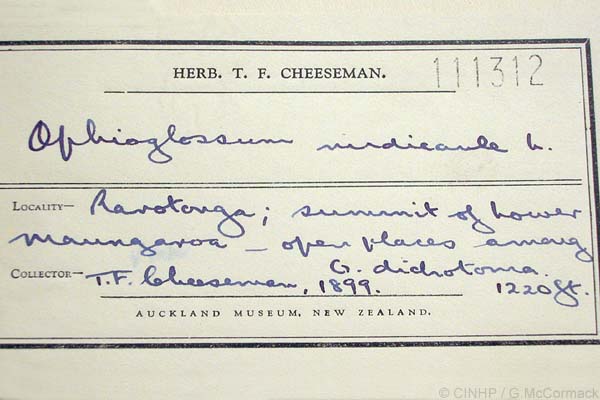 HERB. T. F. CHEESEMAN. 111312
Ophioglossum nudicaule L.
LOCALITY— Rarotonga; summit of Lower
Maungaroa – open places among
G. dichotoma.
COLLECTOR— T.F. Cheeseman, 1899. 1220 ft.
AUCKLAND MUSEUM, NEW ZEALAND.
© CINHP / G.McCormack